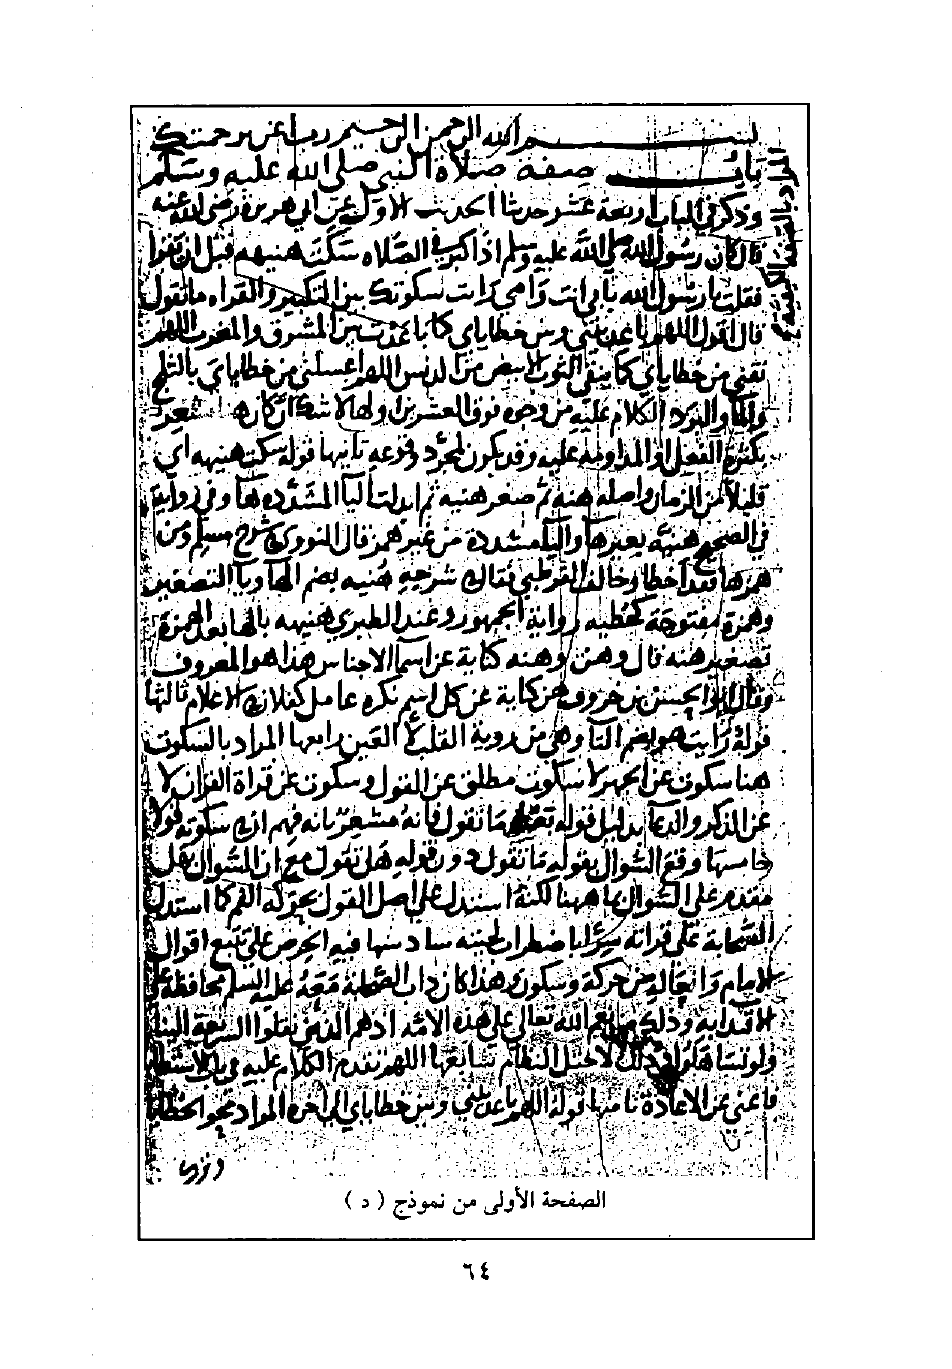 بسم الله الرحمن الرحيم رب اعن برحمتك
باب صفة صلاة النبي صلى الله عليه وسلم
وذكر في الباب اربعة عشر حديثا الحديث الاول عن ابي هريرة رضي الله عنه
قال كان رسول الله صلى الله عليه وسلم اذا كبر في الصلاه سكت هنيهه قبل ان يقرا
فقلت يا رسول الله بابي انت وامي رايت سكوتك بين التكبير والقراه ما تقول
قال اقول اللهم باعد بيني وبين خطاياي كما باعدت بين المشرق والمغرب اللهم
نقني من خطاياي كما ينقى الثوب الابيض من الدنس اللهم اغسلني من خطاياي بالثلج
والماء والبرد الكلام عليه من وجوه فوق العشرين اولها الا شك ان كان هنا تشعر
بكثرة الفعل او المداومة عليه وقد يكون لمجرد وقوعه ثانيها قوله سكت هنيهه اي
قليلا من الزمان واصله هنه ثم صغر هنيه ثم ابدلت اليا المشدده ها وفي رواية
في الصحيح هنية بغيرها واليا مشددة من غير همز قال النووي في شرح مسلم ومن
همزها فقد اخطا وخالف القرطبي فقال في شرحه هنيه بضم الها ويا التصغير
وهمزة مفتوحة كخطيه رواية الجمهور وعند الطبري هنيهه بالها بعد الهمزة
تصغير هنه قال وهن وهنه كناية عن اسما الاجناس هذا هو المعروف
وقال ابو الحسن بن خروف هن كناية عن كل اسم نكره عامل كفلان في الاعلام ثالثها
قوله رايت هو بضم التا وهي من روية القلب لا العين رابعها المراد بالسكوت
هنا سكوت عن الجهر لا سكوت مطلق عن القول وسكوت عن قراة القران لا
عن الذكر والدعا بدليل قوله ما تقول فانه مشعر بانه فهم ان في سكوته قولا
خامسها وقع السوال بقوله ما تقول دون قوله هل تقول مع ان السوال بهل
مقدم على السوال بما ههنا لكنه استدل على اصل القول بحركة الفم كما استدل
الصحابة على قراته سرا باضطراب لحيته سادسها فيه الحرص على تتبع اقوال
الامام وافعاله من حركة وسكون وهذا كان داب الصحابة معه عليه السلم محافظة على
الاقتدا به وذلك من نعم الله تعالى على هذه الامه اذ هم الذين نقلوا الشريعة الينا
ولو تساهلوا في ذلك لاختل النظام سابعها اللهم تقدم الكلام عليه في باب الاستطابة
فاغنى عن الاعادة ثامنها قوله اللهم باعد بيني وبين خطاياي الى اخره المراد محو الخطايا
الصفحة الأولى من نموذج ( د )
٦٤